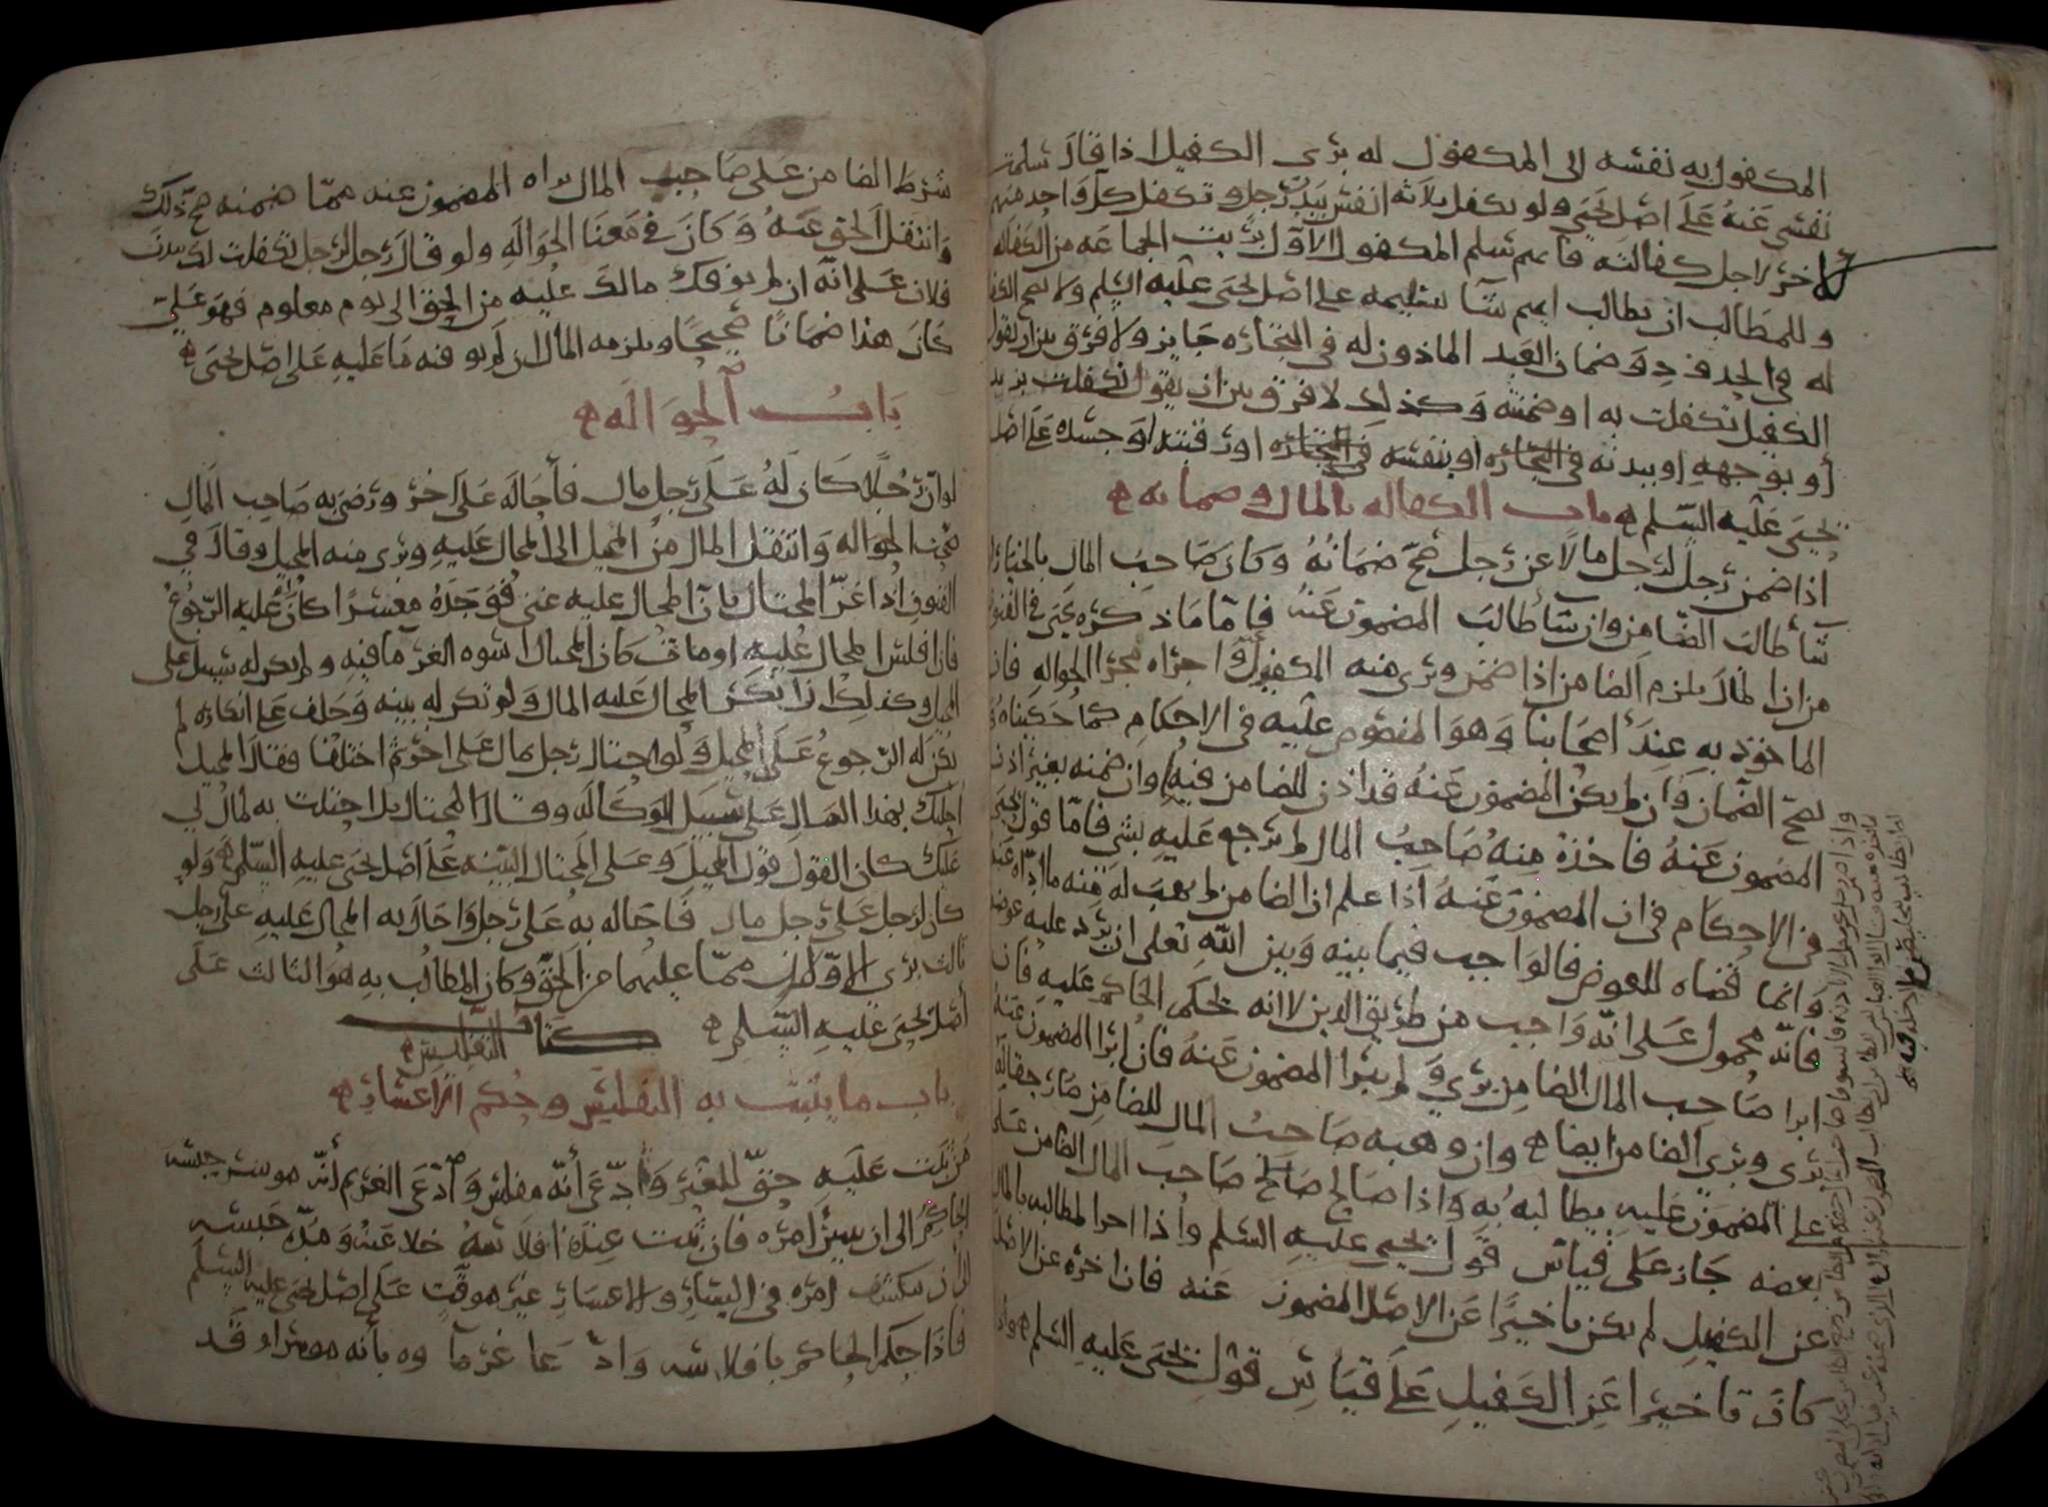 المكفول به نفسه الى المكفول له برى الكفيل اذا قال سلمت
نفسى عنه على اصل يحيى ولو تكفل ثلاثة انفس ببدن رجل وتكفل كل واحد منهم
لاخر لاجل كفالته فايهم سلم المكفول الاول برئت الجماعه من الكفاله
وللمطالب ان يطالب ايهم شآ بتسليمه على اصل يحيى عليه السلم ولا تصح الكفا
له في الحدود وضمان العبد الماذون له في التجاره جايز ولا فرق بين ان يقول
الكفيل تكفلت به او ضمنته وكذلك لا فرق بين ان يقول تكفلت بزيد
او بوجهه او ببدنه او بنفسه او رقبته او جسده على اصل
يحيى عليه السلم باب الكفاله بالمال وضمانه
اذا ضمن رجل لرجل مالا عن رجل صح ضمانه وكان صاحب المال بالخيار ان
شآ طالب الضامن وان شآ طالب المضمون عنه فاما ما ذكره يحيى في الفنون
من ان المال يلزم الضامن اذا ضمن وبرى منه المكفول واجراه مجرا الحواله فان
الماخوذ به عند اصحابنا وهو المنصوص عليه في الاحكام كما حكيناه و
يصح الضمان وان لم يكن المضمون عنه قد اذن للضامن فيه وان ضمنه بغير اذن
المضمون عنه فاخذه منه صاحب المال لم يرجع عليه بشي فاما قول يحيى
في الاحكام في ان المضمون عنه اذا علم ان الضامن لم يهب له منه ما ادّاه عنه
وانما قضاه للعوض فالواجب فيما بينه وبين الله تعلى ان يرد عليه عوضه
فانه محمول على انه واجب من طريق الدين لا انه يحكم الحاكم عليه فان
ابرا صاحب المال الضامن برى ولم يبرا المضمون عنه فان ابرا المضمون عنه
برى وبرى الضامن ايضا وان وهبه صاحب المال للضامن صار حقا له
على المضمون عليه يطالبه به واذا صالح صاحب المال الضامن على
بعضه جاز على قياس قول يحيى عليه السلم واذا اخر المطالبه بالمال
عن الكفيل لم يكن تاخيرا عن الاصل المضمون عنه فان اخره عن الاصل
كان تاخيرا عن الكفيل على قياس قول يحيى عليه السلم وان
شرط الضامن على صاحب المال براه المضمون عنه مما ضمنه صح ذلك
وانتقل الحق عنه وكان في معنا الحواله ولو قال رجل لرجل تكفلت لك ببدن
فلان على انه ان لم يوفك مالك عليه من الحق الى يوم معلوم فهو علي
كان هذا ضمانا صحيحا ويلزمه المال ان لم يوفه ما عليه على اصل يحيى
باب الحواله
لو ان رجلا كان له على رجل مال فأحاله على اخر ورضى به صاحب المال
صحت الحواله وانتقل المال من المحيل الى المحال عليه وبرى منه المحيل وقال في
الفنون اذا غر المحتال بان المحال عليه غنى فوجده معسرا كان عليه الرجوع
فان افلس المحال عليه او مات كان المحتال اسوه الغرما فيه ولم يكن له سبيل على
المحيل وكذلك اذا نكر المحال عليه المال ولم تكن له بينه وحلف على انكاره لم
يكن له الرجوع على المحيل ولو احتال رجل بمال على اخر ثم اختلفا فقال المحيل
احلتك بهذا المال على سبيل الوكاله وقال المحتال بل احتلت به لمال لي
عليك كان القول قول المحيل وعلى المحتال البينه على اصل يحيى عليه السلم ولو
كان لرجل على رجل مال فاحاله به على رجل واحال به المحال عليه على رجل
ثالث برى الاولان مما عليهما من الحق وكان المطالب به هو الثالث على
اصل يحيى عليه السلم كتاب التفليس
باب ما يثبت به التفليس وحكم الاعسار
من ثبت عليه حق للغير وادعى أنه مفلس وادعى الغريم أنه موسر حبسه
الحاكم الى ان يبين امره فان ثبت عنده افلاسه خلا عنه ومدة حبسه
الى ان ينكشف امره في اليسار والاعسار غير موقت على اصل يحيى عليه السلم
فاذا حكم الحاكم بافلاسه وادعا غرماوه بأنه موسر او قد